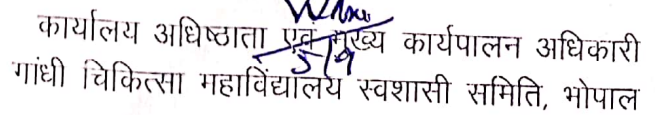 कार्यालय अधिष्ठाता एवं मुख्य कार्यपालन अधिकारी
गांधी चिकित्सा महाविद्यालय स्वशासी समिति, भोपाल
5/9